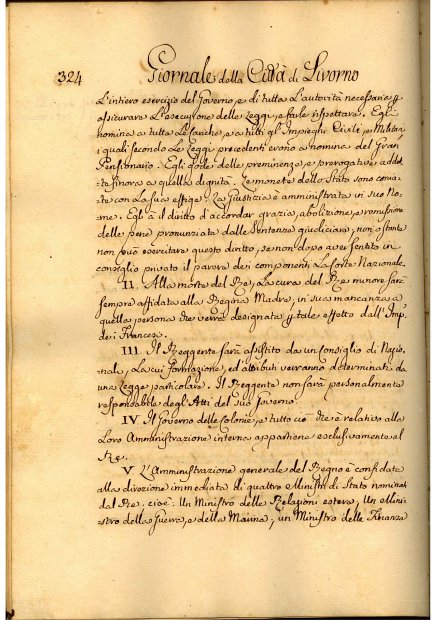 324 Giornale della Città di Livorno
L'intiero esercizio del Governo, e di tutta L'autorità necessaria p
assicurare L'esecuzione delle Leggi, e farle rispettare. Egli
nomina a tutte Le Cariche, e a tutti gli Impieghi Civili, e Militari
i quali secondo Le Leggi precedenti erano a nomina del Gran
Pensionario. Egli gode delle preminenze, e prerogative addet-
te finora a quella dignità. Le monete dello Stato sono conia-
te con La sua effige. La Giustizia è amministrata in suo No-
me. Egli à il diritto d'accordar grazia, abolizione, e remissione
delle pene pronunziate dalle Sentenze giudiciarie, non ostante
non può esercitare questo diritto, se non dopo aver sentito in
consiglio privato il parere dei componenti La Corte Nazionale.
II. Alla morte del Re, La cura del Re minore sarà
sempre affidata alla Regina Madre, in sua mancanza a
quella persona che verrà designata p tale effetto dall' Imp.
dei Francesi.
III. Il Reggente sarà assistito da un Consiglio di Nazio-
nali, La cui formazione, ed attributi verranno determinati da
una Legge particolare. Il Reggente non sarà personalmente
responsabile degl'Atti del suo Governo.
IV. Il Governo delle Colonie, e tutto ciò che è relativo alla
Loro Amministrazione interna appartiene esclusivamente al
Re.
V. L'Amministrazione generale del Regno è confidata
alla direzione immediata di quattro Ministri di Stato nominati
dal Re. cioè. Un Ministro delle Relazioni estere, Un Mini-
stro della Guerra, e della Marina, un Ministro delle Finanze